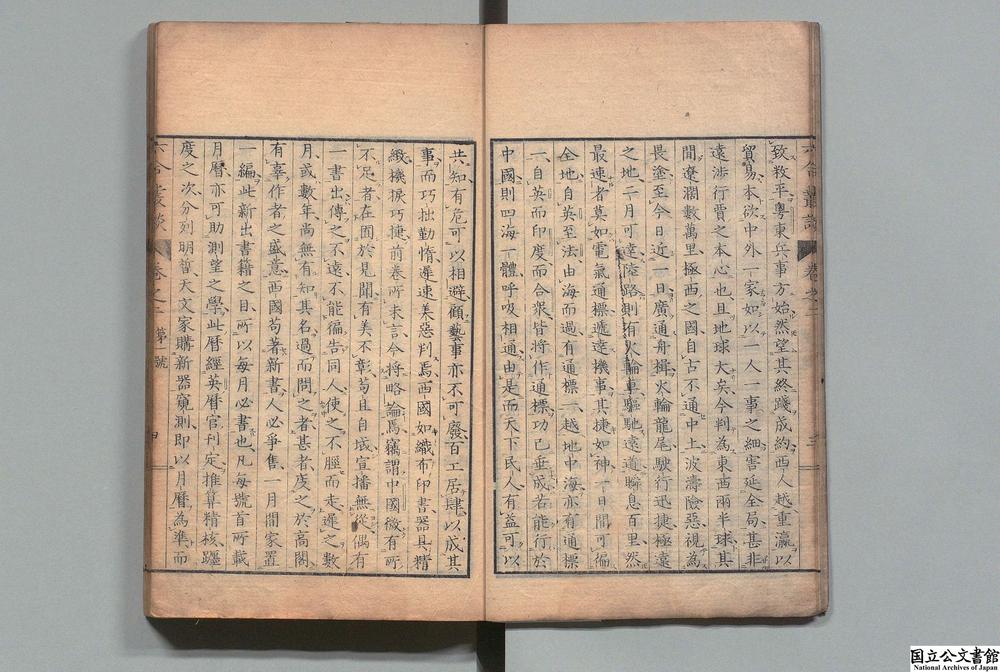 六合叢談 卷之二 三
致敉平粵東兵事方始然望其終踐成約西人越重瀛以
貿易本欲中外一家如以一人一事之細害延全局甚非
遠涉行賈之本心也且地球大矣今判為東西兩半球其
間遼濶數萬里極西之國自古不通中土波濤險惡視為
畏途至今日近一日廣通舟楫火輪龍尾駛行迅捷極遠
之地二月可達陸路則有火輪車驅馳遠道瞬息百里然
最速者莫如電氣通標遞達機事其捷如神一日間可徧
全地自英至法由海而過有通標二越地中海亦有通標
一自英而印度而合衆皆將作通標功已垂成若能行於
中國則四海一體呼吸相通由是而天下民人有益可以
共知有危可以相避顧藝事亦不可廢百工居肆以成其
事而巧拙勤惰遲速美惡判焉西國如織布印書器具精
緻機捩巧捷前卷所未言今將略論焉竊謂中國微有所
不足者在囿於見聞有美不彰苟且自域宣播無從偶有
一書出傳之不遠不能徧告同人使之不脛而走遲之數
月或數年尚無有知其名過而問之者甚者庋之於高閣
有辜作者之盛意西國苟著新書人必爭售一月間家置
一編此新出書籍之目所以每月必書也凡每號首所載
月曆亦可助測望之學此曆經英曆官刊定推算精核躔
度之次分列明皙天文家購新器窺測即以月曆為準而
六合叢談 卷之二 第一號